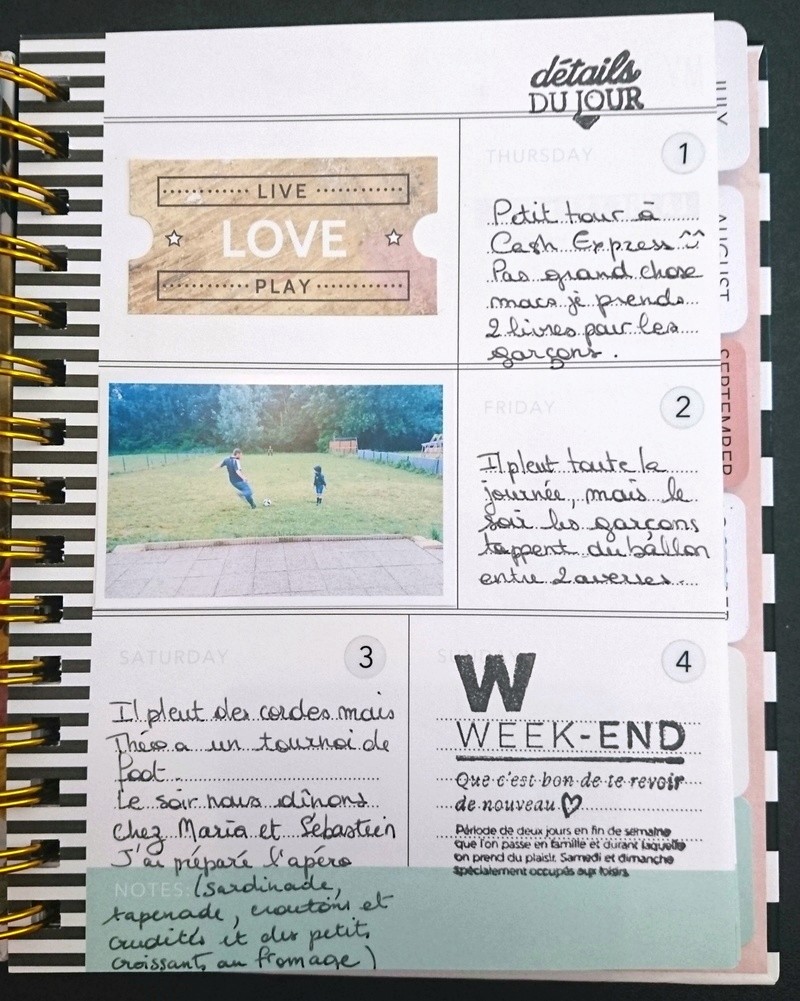 détails
DU JOUR
LIVE
LOVE
PLAY
THURSDAY
1
Petit tour à
Cash Express ^^
Pas grand chose
mais je prends
2 livres pour les
garçons.
FRIDAY
2
Il pleut toute la
journée, mais le
soir les garçons
tappent du ballon
entre 2 averses.
SATURDAY
3
Il pleut des cordes mais
Théo a un tournoi de
foot.
Le soir nous dînons
chez Maria et Sébastien
J'ai préparé l'apéro
NOTES: (Sardinade,
tapenade, croutons et
crudités et des petits
croissants au fromage)
SUNDAY
4
W
WEEK-END
Que c'est bon de te revoir
de nouveau
Période de deux jours en fin de semaine
que l'on passe en famille et durant laquelle
on prend du plaisir. Samedi et dimanche
spécialement occupés aux loisirs.
JULY
AUGUST
SEPTEMBER